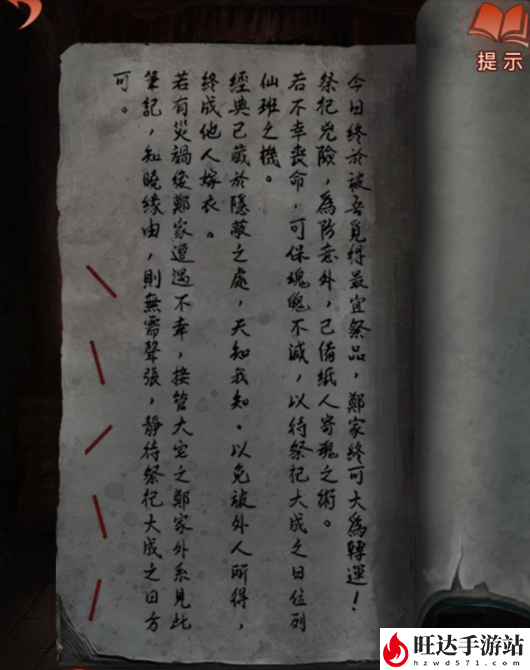 今日終於被吾覓得最宜祭品，鄭家終可大為轉運！
祭祀兇險，為防意外，已備紙人寄魂之術。
若不幸喪命，可保魂魄不滅，以待祭祀大成之日位列
仙班之機。
經典已藏於隱蔽之處，天知我知。以免被外人所得，
終成他人嫁衣。
若有災禍後鄭家遭遇不幸，接管大宅之鄭家外系見此
筆記，知曉緣由，則無需聲張，靜待祭祀大成之日方
可。
提示
旺达手游站
hzwd571.com